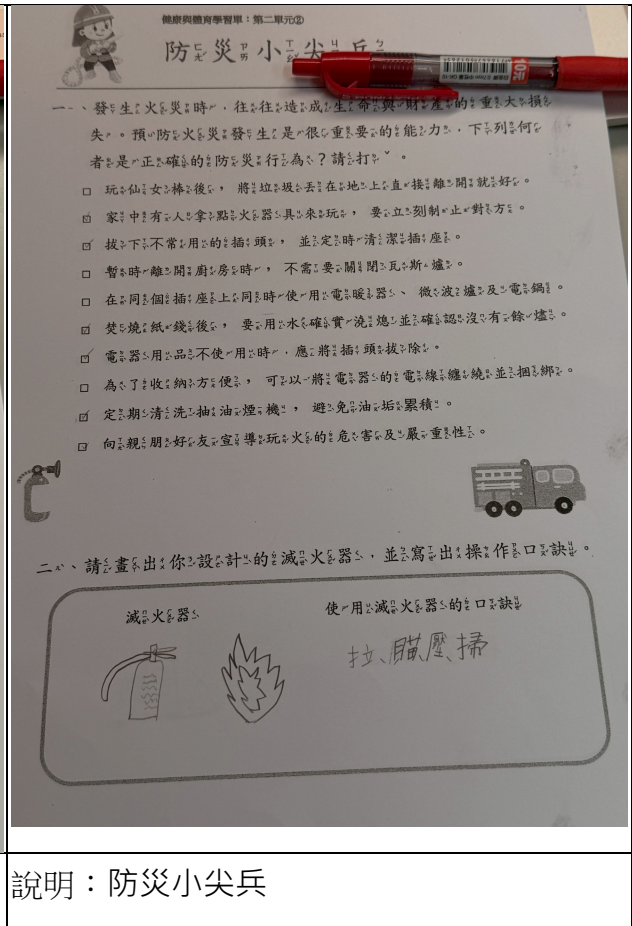 健康與體育學習單：第二單元②
防災小尖兵
10元
一、發生火災時，往往造成生命與財產的重大損
失。預防火災發生是很重要的能力，下列何
者是正確的防災行為？請打ˇ。
□ 玩仙女棒後，將垃圾丟在地上直接離開就好。
☑ 家中有人拿點火器具來玩，要立刻制止對方。
☑ 拔下不常用的插頭，並定時清潔插座。
□ 暫時離開廚房時，不需要關閉瓦斯爐。
□ 在同個插座上同時使用電暖器、微波爐及電鍋。
☑ 焚燒紙錢後，要用水確實澆熄並確認沒有餘燼。
☑ 電器用品不使用時，應將插頭拔除。
□ 為了收納方便，可以將電器的電線纏繞並捆綁。
☑ 定期清洗抽油煙機，避免油垢累積。
☑ 向親朋好友宣導玩火的危害及嚴重性。
二、請畫出你設計的滅火器，並寫出操作口訣。
滅火器
使用滅火器的口訣
拉、瞄、壓、掃
說明：防災小尖兵